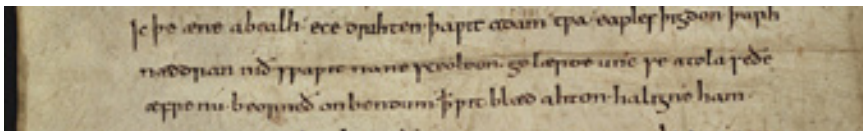 Ic þe æne abealh · ece drihten · þa wit adam twa · eaples þigdon þurh
næddran nið swa wit na ne sceoldon · gelærde unc se atola se ðe
æfre nu · beorneð on bendum · ꝥ wit blæd ahton · haligne ham ·